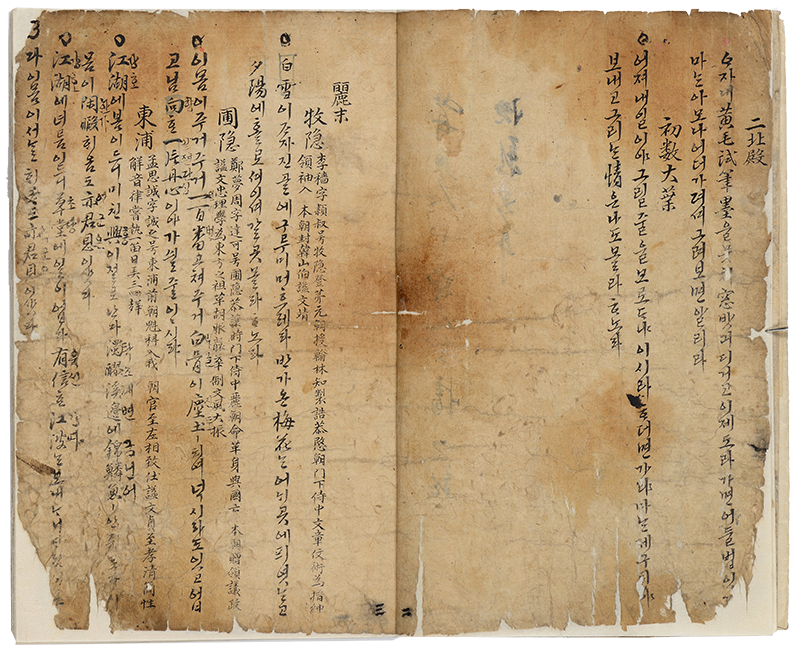 二北殿
〃자내黃毛試筆墨을뭇쳐窓밧긔디거고이제도라가면어들법잇
마는아모나어더가뎌셔그려보면알리라
初数大葉
어져내일이야그릴줄을모로도냐이시라ᄒᆞ더면가랴마는제구ᄐᆡ야
보내고그리는情은나도몰라ᄒᆞ노라
麗末
牧隐
李穡字頴叔号牧隐登苐元朝授翰林知製誥恭愍朝門下侍中文章伎術為搢紳
領袖入 本朝封韓山伯諡文靖
白雪이ᄌᆞ자진골에구루미머흐레라반가온梅花는어ᄂᆡ곳에픠엿는고
夕陽에홀로셔이셔갈곳몰라ᄒᆞ노라
圃隐
鄭夢周字達可号圃隐恭讓時門下侍中麗朝命革身與國亡 本朝贈領議政
諡文忠理學為東方之祖革胡服 文風大振
이몸이주거주거一百番고쳐주거白骨이塵土ㅣ되여넉시라도잇고업
고님向ᄒᆞᆫ一片丹心이야가싈줄이이시랴
東浦
孟思誠字誠之号東浦前朝魁科入我 朝官至左相致仕諡文肖至孝清簡性
解音律嘗執一笛日弄三四聲
江湖에봄이드니미친興이절로난다濁醪溪邊에錦鱗魚ㅣ안
몸이閑暇히옴도亦君恩이샷다
江湖에녀름이드니草堂에일이업다有信ᄒᆞᆫ江波는보내ᄂᆞ니
다이몸이서늘히옴도亦君恩이샷다